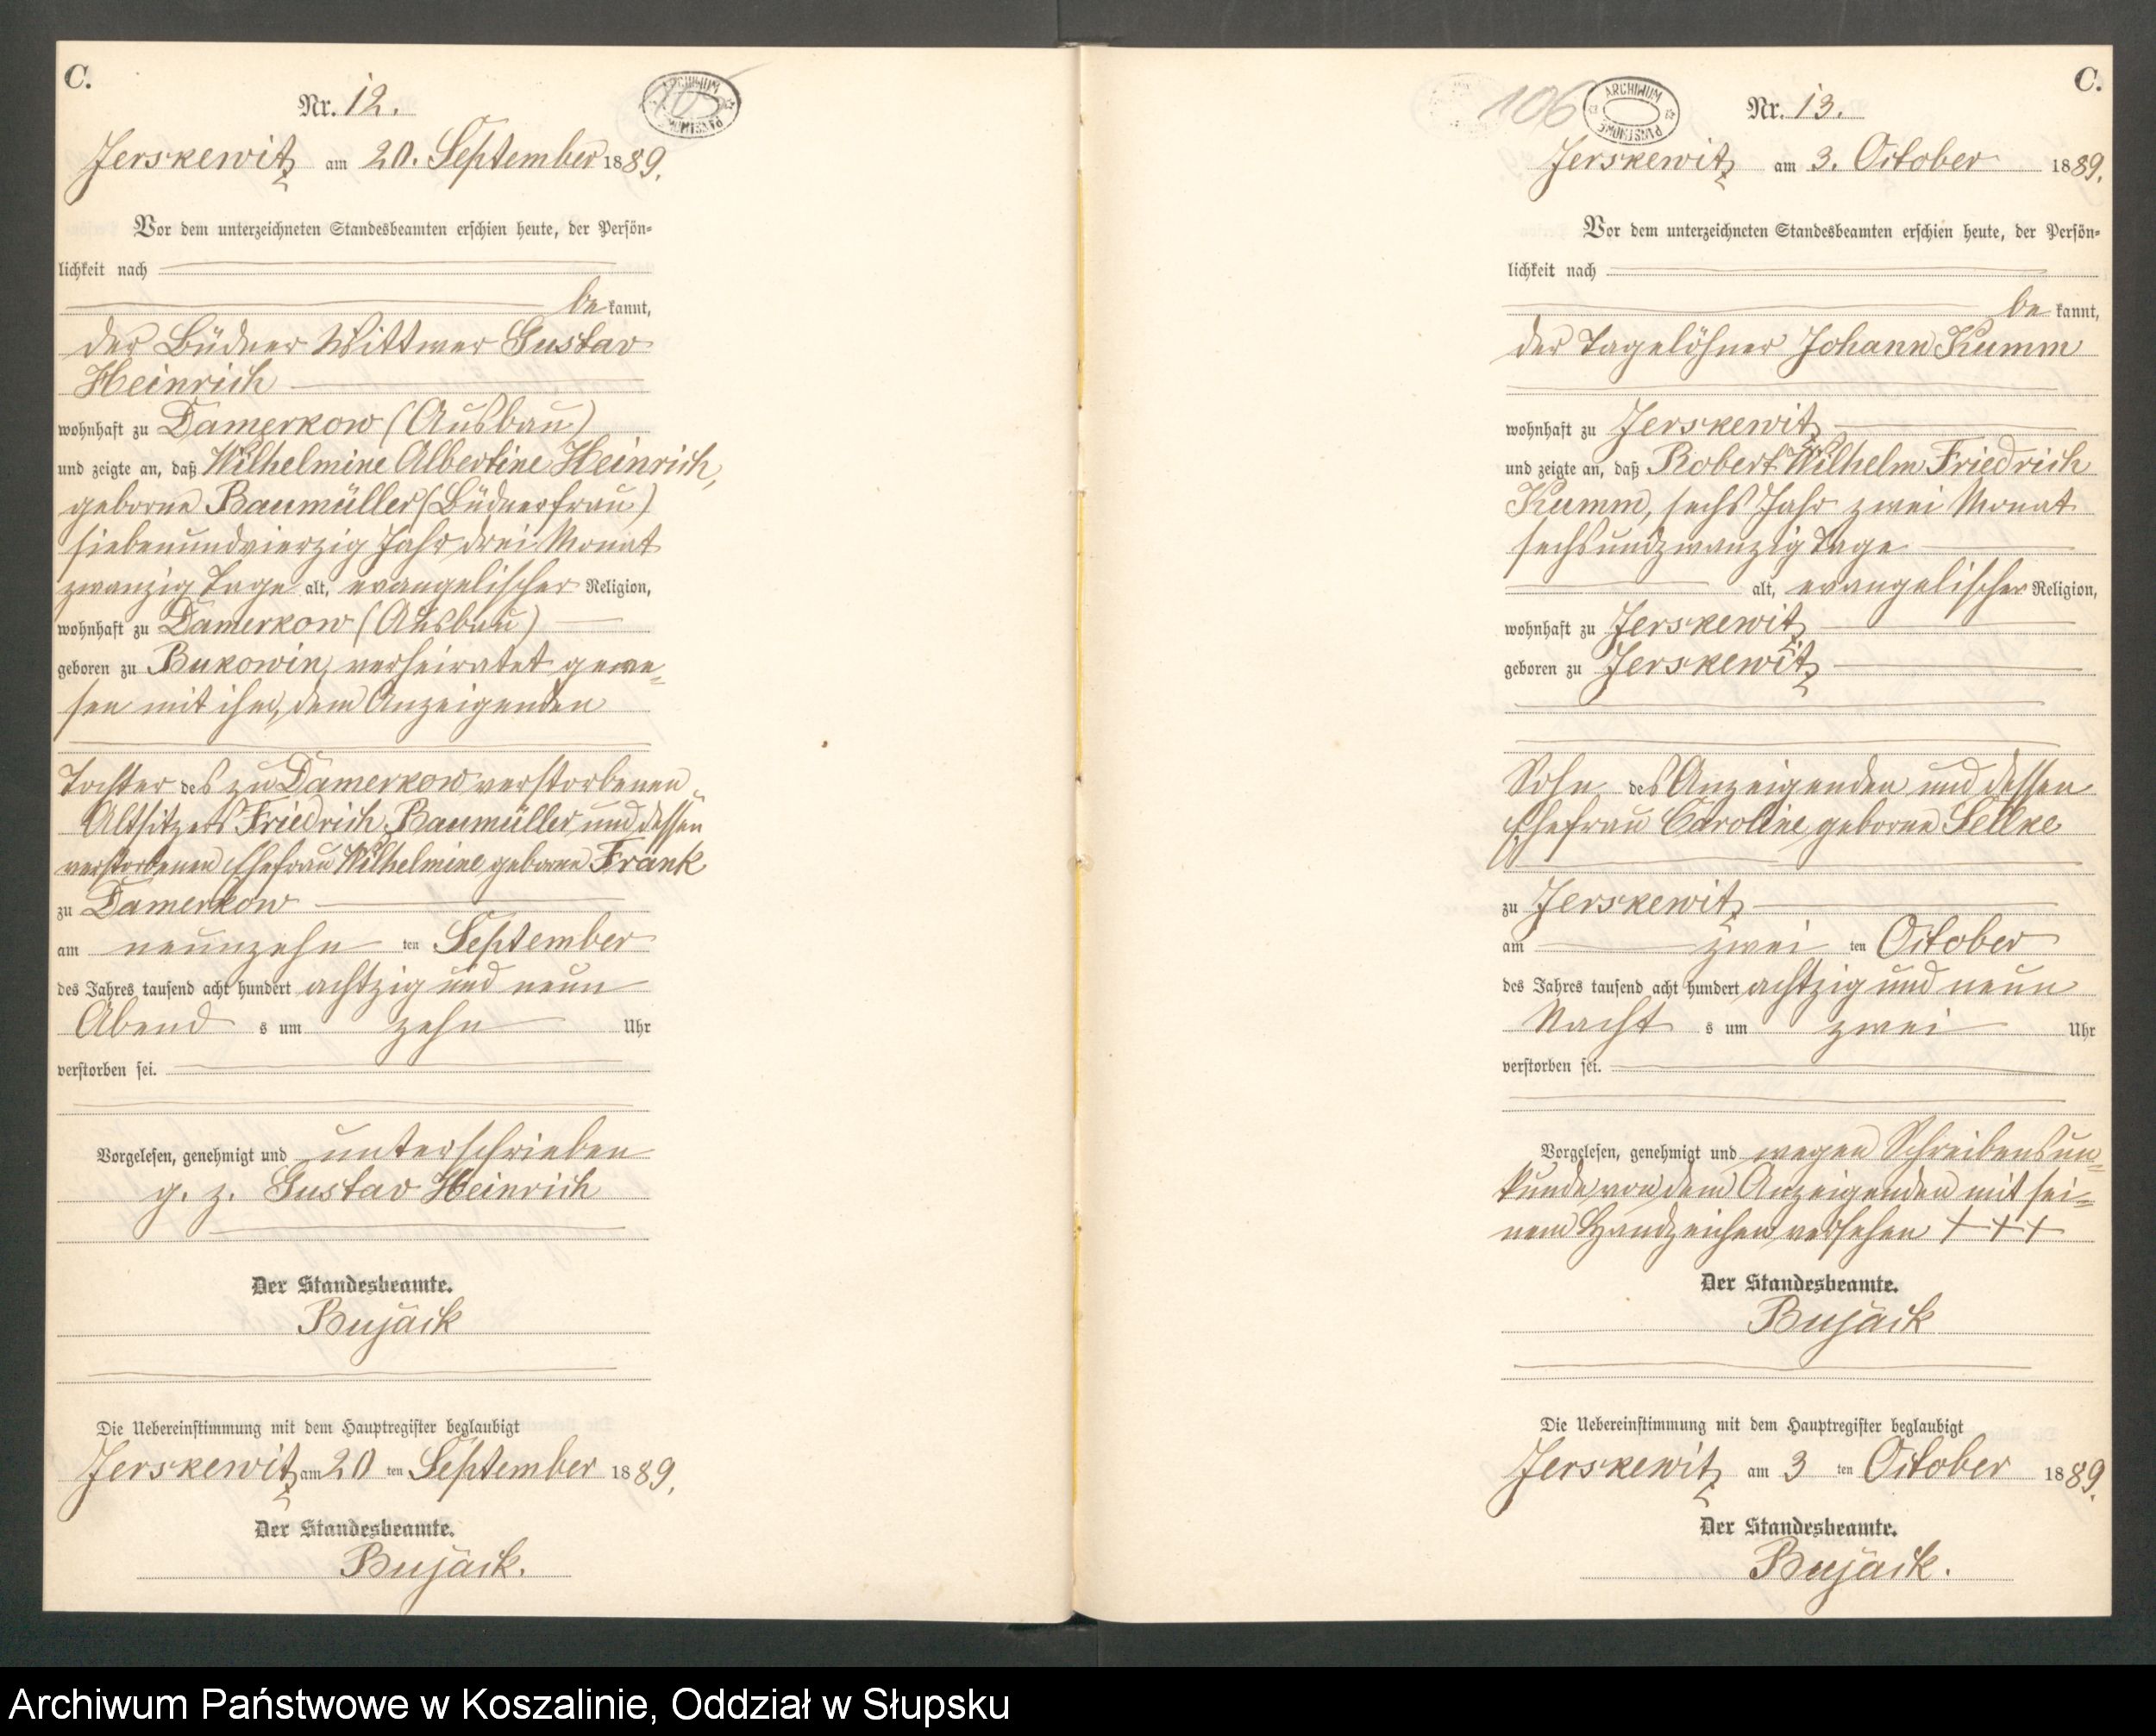 C.
Nr. 12.
ARCHIWUM PAŃSTWOWE
Jerskewitz am 20. September 1889.
Vor dem unterzeichneten Standesbeamten erschien heute, der Persön-
lichkeit nach
be kannt,
der Büdner Wittwer Gustav
Heinrich
wohnhaft zu Damerkow (Ausbau)
und zeigte an, daß Wilhelmine Albertine Heinrich,
geborne Baumüller (Büdnerfrau)
siebenundvierzig Jahr drei Monat
zwanzig Tage alt, evangelischer Religion,
wohnhaft zu Damerkow (Ausbau)
geboren zu Bukowin, verheiratet gewe-
sen mit ihm, dem Anzeigenden
Tochter des zu Damerkow verstorbenen
Altsitzers Friedrich Baumüller und dessen
verstorbenen Ehefrau Wilhelmine geborne Frank
zu Damerkow
am neunzehn ten September
des Jahres tausend acht hundert achtzig und neun
Abend s um zehn Uhr
verstorben sei.
Vorgelesen, genehmigt und unterschrieben
g. z. Gustav Heinrich
Der Standesbeamte.
Bujack
Die Uebereinstimmung mit dem Hauptregister beglaubigt
Jerskewitz am 20 ten September 1889.
Der Standesbeamte.
Bujack.
C.
106
ARCHIWUM PAŃSTWOWE
Nr. 13.
Jerskewitz am 3. October 1889.
Vor dem unterzeichneten Standesbeamten erschien heute, der Persön-
lichkeit nach
be kannt,
der Tagelöhner Johann Kumm
wohnhaft zu Jerskewitz
und zeigte an, daß Robert Wilhelm Friedrich
Kumm, sechs Jahr zwei Monat
sechsundzwanzig Tage
alt, evangelischer Religion,
wohnhaft zu Jerskewitz
geboren zu Jerskewitz
Sohn des Anzeigenden und dessen
Ehefrau Caroline geborne Sellke
zu Jerskewitz
am zwei ten October
des Jahres tausend acht hundert achtzig und neun
Nacht s um zwei Uhr
verstorben sei.
Vorgelesen, genehmigt und wegen Schreibensun-
kunde von dem Anzeigenden mit sei-
nem Handzeichen versehen + + +
Der Standesbeamte.
Bujack
Die Uebereinstimmung mit dem Hauptregister beglaubigt
Jerskewitz am 3 ten October 1889.
Der Standesbeamte.
Bujack.
Archiwum Państwowe w Koszalinie, Oddział w Słupsku